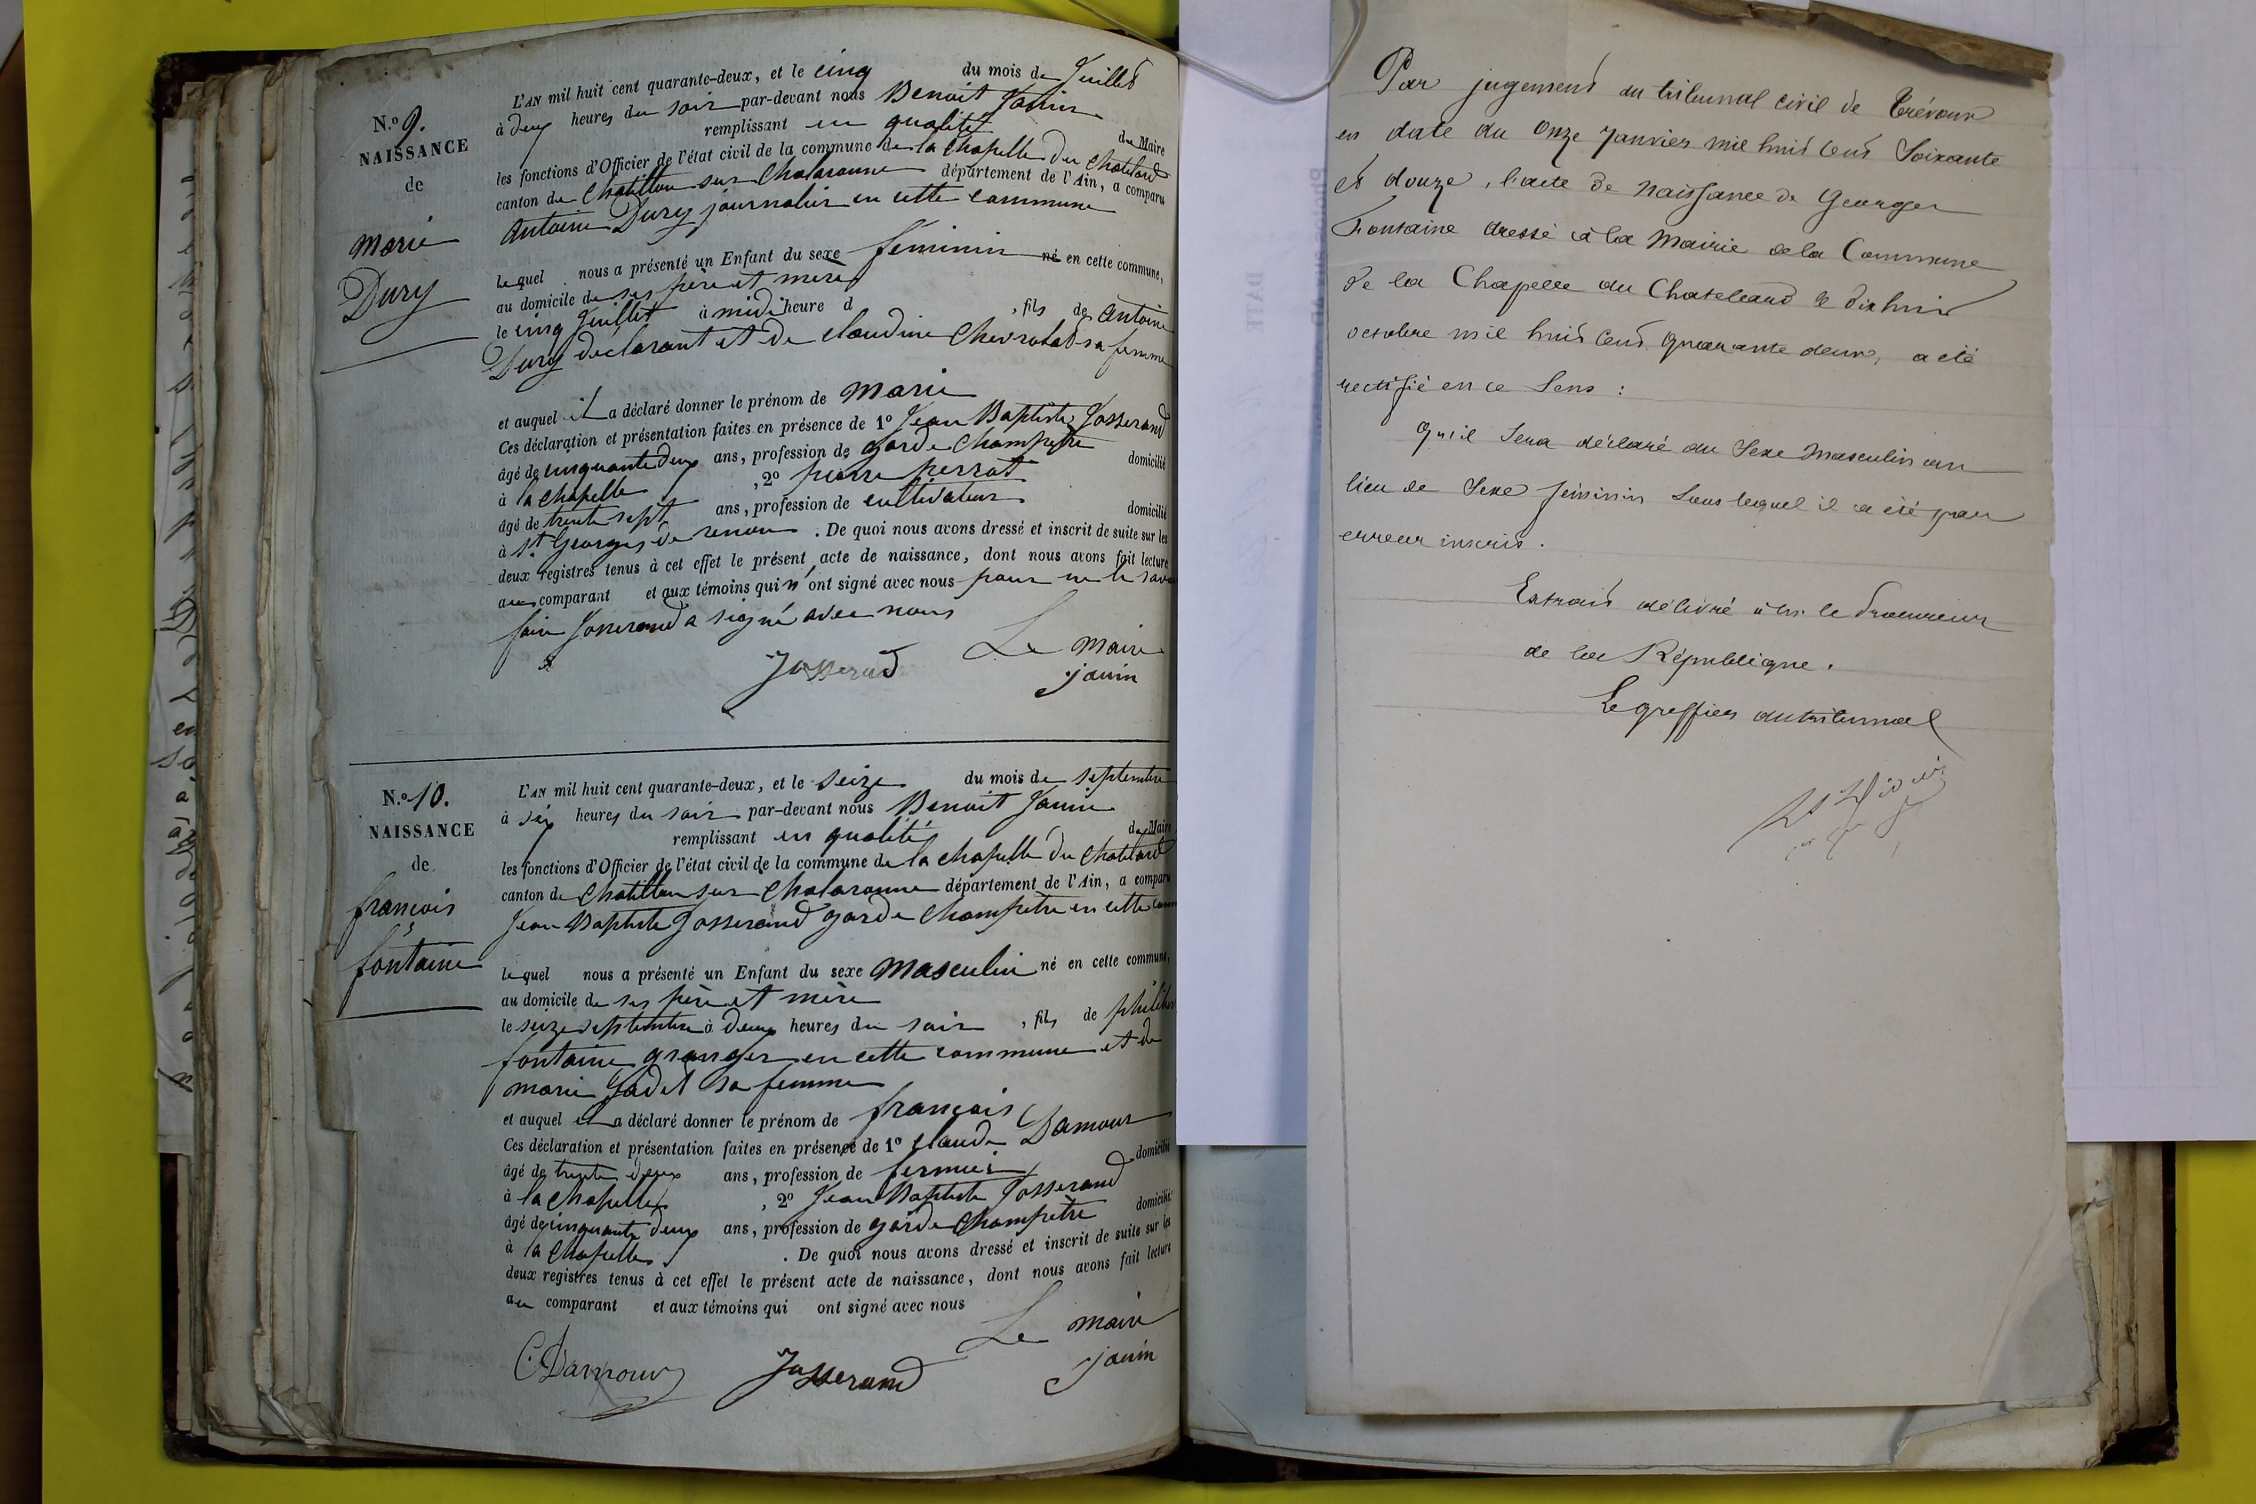 N.º 9.
NAISSANCE
de
Marie
Dury
L'AN mil huit cent quarante-deux, et le cinq du mois de Juillet
à deux heures du soir par-devant nous Benoit Janin
remplissant en qualité de Maire
les fonctions d'Officier de l'état civil de la commune de la chapelle du chatelard
canton de Chatillon sur Chalaronne département de l'Ain, a comparu
Antoine Dury journalier en cette commune
lequel nous a présenté un Enfant du sexe féminin né en cette commune,
au domicile de ses père et mère
le cinq Juillet à midi heure d , fils de Antoine
Dury déclarant et de claudine Chevrolat sa femme
et auquel il a déclaré donner le prénom de Marie
Ces déclaration et présentation faites en présence de 1º Jean Baptiste Josserand
âgé de cinquante deux ans, profession de garde champêtre domicilié
à la chapelle , 2º pierre perrat
âgé de trente sept ans, profession de cultivateur domicilié
à St Georges de renon . De quoi nous avons dressé et inscrit de suite sur les
deux registres tenus à cet effet le présent acte de naissance, dont nous avons fait lecture
au comparant et aux témoins qui n'ont signé avec nous pour ne le savoir
faire Josserand a signé avec nous
Le Maire
Josserand janin
N.º 10.
NAISSANCE
de
françois
fontaine
L'AN mil huit cent quarante-deux, et le seize du mois de septembre
à six heures du soir par-devant nous Benoit Janin
remplissant en qualité de Maire
les fonctions d'Officier de l'état civil de la commune de la chapelle du chatelard
canton de Chatillon sur Chalaronne département de l'Ain, a comparu
Jean Baptiste Josserand garde champêtre en cette
lequel nous a présenté un Enfant du sexe masculin né en cette commune,
au domicile de ses père et mère
le seize septembre à deux heures du soir , fils de
fontaine granger en cette commune et de
marie Jadet sa femme
et auquel il a déclaré donner le prénom de françois
Ces déclaration et présentation faites en présence de 1º claude Damour
âgé de trente deux ans, profession de fermier domicilié
à la chapelle , 2º Jean Baptiste Josserand
âgé de cinquante deux ans, profession de garde champêtre domicilié
à la chapelle . De quoi nous avons dressé et inscrit de suite sur les
deux registres tenus à cet effet le présent acte de naissance, dont nous avons fait lecture
au comparant et aux témoins qui ont signé avec nous
Le maire
C. Damour Josserand janin
Par jugement du tribunal civil de Trévoux
en date du onze Janvier mil huit cent soixante
et douze, l'acte de naissance de Georges
Fontaine dressé à la Mairie de la Commune
de la Chapelle du Chatelard le dix huit
octobre mil huit cent quarante deux, a été
rectifié en ce sens :
qu'il sera déclaré du sexe masculin au
lieu de sexe féminin sous lequel il a été par
erreur inscrit.
Extrait délivré à Mr le Procureur
de la République.
Le greffier du tribunal